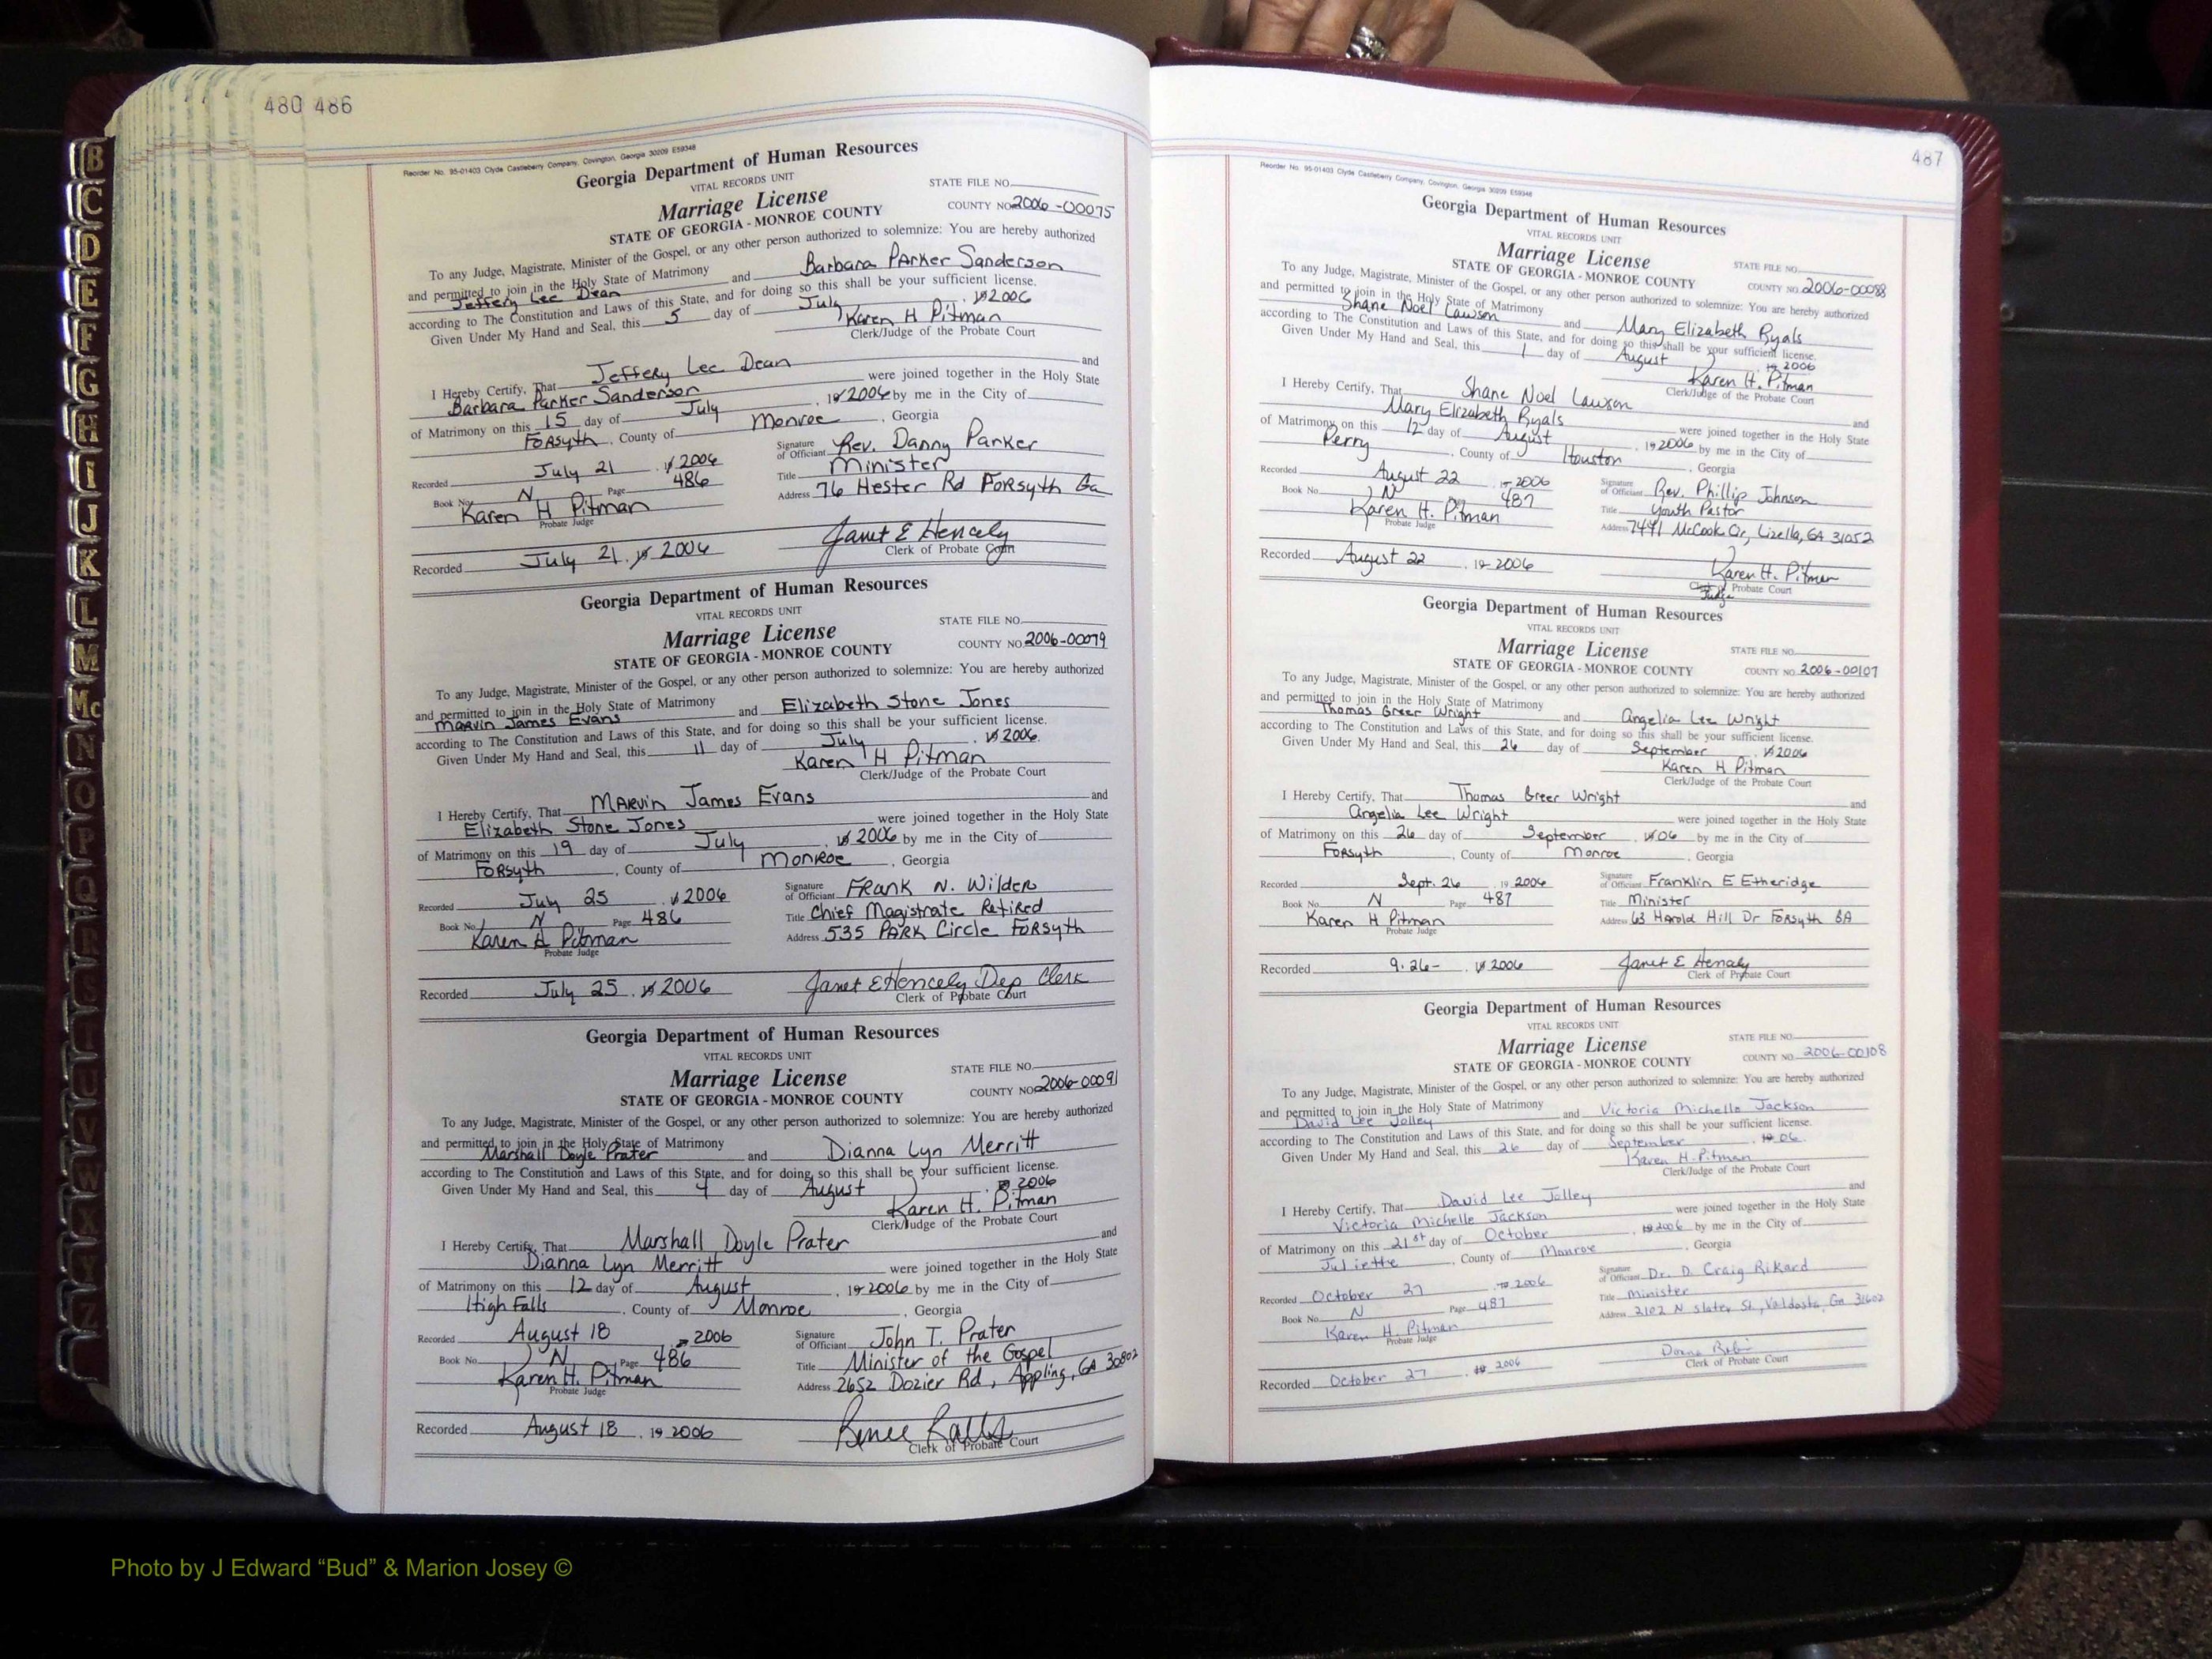 480 486
Reorder No. 95-01403 Clyde Castleberry Company, Covington, Georgia 30209 E59348
Georgia Department of Human Resources
VITAL RECORDS UNIT
STATE FILE NO.
Marriage License
COUNTY NO. 2006-00075
STATE OF GEORGIA - MONROE COUNTY
To any Judge, Magistrate, Minister of the Gospel, or any other person authorized to solemnize: You are hereby authorized
and permitted to join in the Holy State of Matrimony
Jeffery Lee Dean and Barbara Parker Sanderson
according to The Constitution and Laws of this State, and for doing so this shall be your sufficient license.
Given Under My Hand and Seal, this 5 day of July, 19 2006
Karen H Pitman
Clerk/Judge of the Probate Court
I Hereby Certify, That Jeffery Lee Dean and
Barbara Parker Sanderson were joined together in the Holy State
of Matrimony on this 15 day of July, 19 2006 by me in the City of
Forsyth, County of Monroe, Georgia
Recorded July 21, 19 2006
Book No. N Page 486
Karen H Pitman
Probate Judge
Signature of Officiant Rev. Danny Parker
Title Minister
Address 76 Hester Rd Forsyth Ga
Recorded July 21, 19 2006
Janet E Hencely
Clerk of Probate Court
Georgia Department of Human Resources
VITAL RECORDS UNIT
STATE FILE NO.
Marriage License
COUNTY NO. 2006-00079
STATE OF GEORGIA - MONROE COUNTY
To any Judge, Magistrate, Minister of the Gospel, or any other person authorized to solemnize: You are hereby authorized
and permitted to join in the Holy State of Matrimony
Marvin James Evans and Elizabeth Stone Jones
according to The Constitution and Laws of this State, and for doing so this shall be your sufficient license.
Given Under My Hand and Seal, this 11 day of July, 19 2006.
Karen H Pitman
Clerk/Judge of the Probate Court
I Hereby Certify, That Marvin James Evans and
Elizabeth Stone Jones were joined together in the Holy State
of Matrimony on this 19 day of July, 19 2006 by me in the City of
Forsyth, County of Monroe, Georgia
Recorded July 25, 19 2006
Book No. N Page 486
Karen H Pitman
Probate Judge
Signature of Officiant Frank N. Wilder
Title Chief Magistrate Retired
Address 535 Park Circle Forsyth
Recorded July 25, 19 2006
Janet E Hencely Dep Clerk
Clerk of Probate Court
Georgia Department of Human Resources
VITAL RECORDS UNIT
STATE FILE NO.
Marriage License
COUNTY NO. 2006-00091
STATE OF GEORGIA - MONROE COUNTY
To any Judge, Magistrate, Minister of the Gospel, or any other person authorized to solemnize: You are hereby authorized
and permitted to join in the Holy State of Matrimony
Marshall Doyle Prater and Dianna Lyn Merritt
according to The Constitution and Laws of this State, and for doing so this shall be your sufficient license.
Given Under My Hand and Seal, this 4 day of August, 19 2006
Karen H. Pitman
Clerk/Judge of the Probate Court
I Hereby Certify, That Marshall Doyle Prater and
Dianna Lyn Merritt were joined together in the Holy State
of Matrimony on this 12 day of August, 19 2006 by me in the City of
High Falls, County of Monroe, Georgia
Recorded August 18, 19 2006
Book No. N Page 486
Karen H. Pitman
Probate Judge
Signature of Officiant John T. Prater
Title Minister of the Gospel
Address 2652 Dozier Rd, Appling, GA 30802
Recorded August 18, 19 2006
Renee Ralls
Clerk of Probate Court
487
Reorder No. 95-01403 Clyde Castleberry Company, Covington, Georgia 30209 E59348
Georgia Department of Human Resources
VITAL RECORDS UNIT
Marriage License
STATE FILE NO.
STATE OF GEORGIA - MONROE COUNTY
COUNTY NO. 2006-00088
To any Judge, Magistrate, Minister of the Gospel, or any other person authorized to solemnize: You are hereby authorized
and permitted to join in the Holy State of Matrimony
Shane Noel Lawson and Mary Elizabeth Ryals
according to The Constitution and Laws of this State, and for doing so this shall be your sufficient license.
Given Under My Hand and Seal, this 1 day of August, 19 2006
Karen H. Pitman
Clerk/Judge of the Probate Court
I Hereby Certify, That Shane Noel Lawson and
Mary Elizabeth Ryals were joined together in the Holy State
of Matrimony on this 12 day of August, 19 2006 by me in the City of
Perry, County of Houston, Georgia
Recorded August 22, 19 2006
Book No. N Page 487
Karen H. Pitman
Probate Judge
Signature of Officiant Rev. Phillip Johnson
Title Youth Pastor
Address 7441 McCook Cir, Lizella, GA 31052
Recorded August 22, 19 2006
Karen H. Pitman
Clerk of Probate Court
Judge
Georgia Department of Human Resources
VITAL RECORDS UNIT
Marriage License
STATE FILE NO.
STATE OF GEORGIA - MONROE COUNTY
COUNTY NO. 2006-00107
To any Judge, Magistrate, Minister of the Gospel, or any other person authorized to solemnize: You are hereby authorized
and permitted to join in the Holy State of Matrimony
Thomas Greer Wright and Angelia Lee Wright
according to The Constitution and Laws of this State, and for doing so this shall be your sufficient license.
Given Under My Hand and Seal, this 26 day of September, 19 2006
Karen H Pitman
Clerk/Judge of the Probate Court
I Hereby Certify, That Thomas Greer Wright and
Angelia Lee Wright were joined together in the Holy State
of Matrimony on this 26 day of September, 19 06 by me in the City of
Forsyth, County of Monroe, Georgia
Recorded Sept. 26, 19 2006
Book No. N Page 487
Karen H Pitman
Probate Judge
Signature of Officiant Franklin E Etheridge
Title Minister
Address 63 Harold Hill Dr Forsyth GA
Recorded 9-26-, 19 2006
Janet E Hencely
Clerk of Probate Court
Georgia Department of Human Resources
VITAL RECORDS UNIT
Marriage License
STATE FILE NO.
STATE OF GEORGIA - MONROE COUNTY
COUNTY NO. 2006-00108
To any Judge, Magistrate, Minister of the Gospel, or any other person authorized to solemnize: You are hereby authorized
and permitted to join in the Holy State of Matrimony
David Lee Jolley and Victoria Michelle Jackson
according to The Constitution and Laws of this State, and for doing so this shall be your sufficient license.
Given Under My Hand and Seal, this 26 day of September, 19 06.
Karen H. Pitman
Clerk/Judge of the Probate Court
I Hereby Certify, That David Lee Jolley and
Victoria Michelle Jackson were joined together in the Holy State
of Matrimony on this 21st day of October, 19 2006 by me in the City of
Juliette, County of Monroe, Georgia
Recorded October 27, 19 2006
Book No. N Page 487
Karen H. Pitman
Probate Judge
Signature of Officiant Dr. D. Craig Rikard
Title Minister
Address 2102 N Slater St, Valdosta, Ga 31602
Recorded October 27, 19 2006
Clerk of Probate Court
B
C
D
E
F
G
H
I
J
K
L
M
Mc
N
O
P
Q
R
S
T
U
V
W
X
Y
Z
Photo by J Edward “Bud” & Marion Josey ©